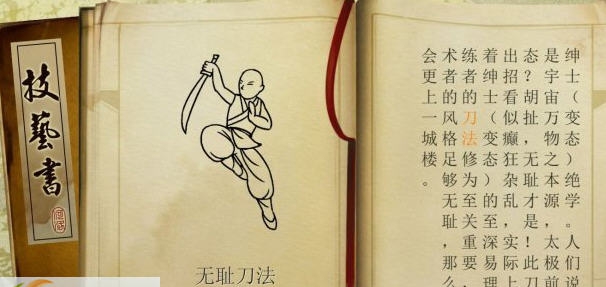 技藝書
无耻刀法
绅士（变态）绝学。人们说
是宇宙万物之本源，太极前
态？胡扯，无耻才是！此刀
出招看似癫狂杂乱，实际上
着绅士（变态）的至深易理
练者的刀法修为至关重要，
术者的风格足够无耻，那么
会更上一城楼。